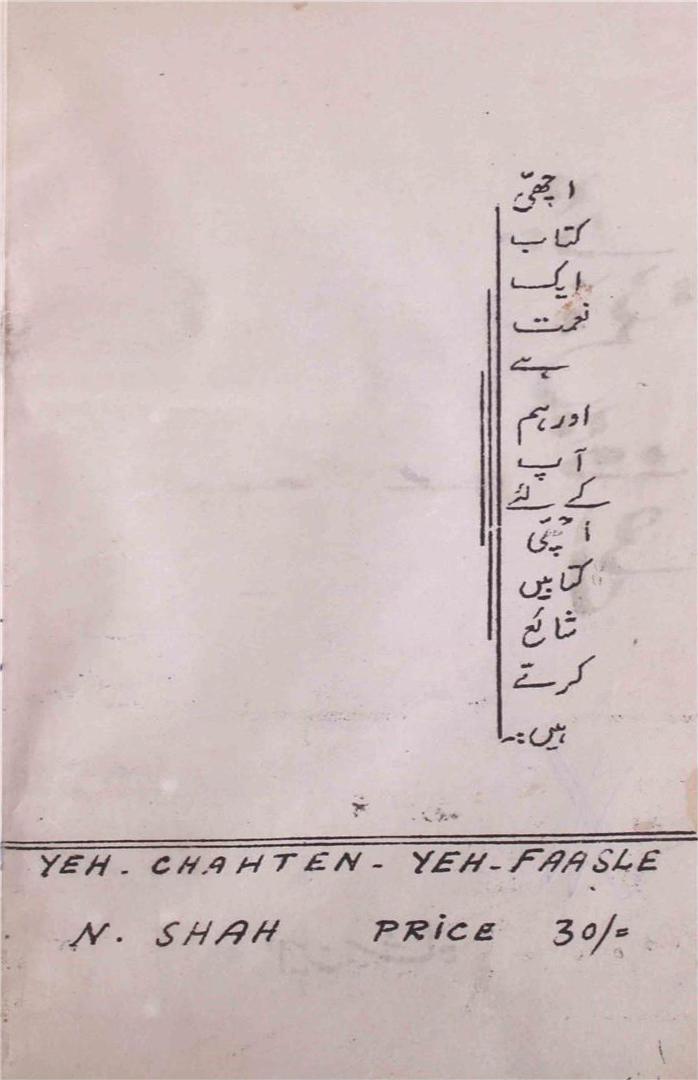 اچھی
کتاب
ایک
نعمت
ہے
اور ہم
آپ
کے لئے
اچھی
کتابیں
شائع
کرتے
ہیں۔
YEH - CHAHTEN - YEH - FAASLE
N. SHAH PRICE 30/=